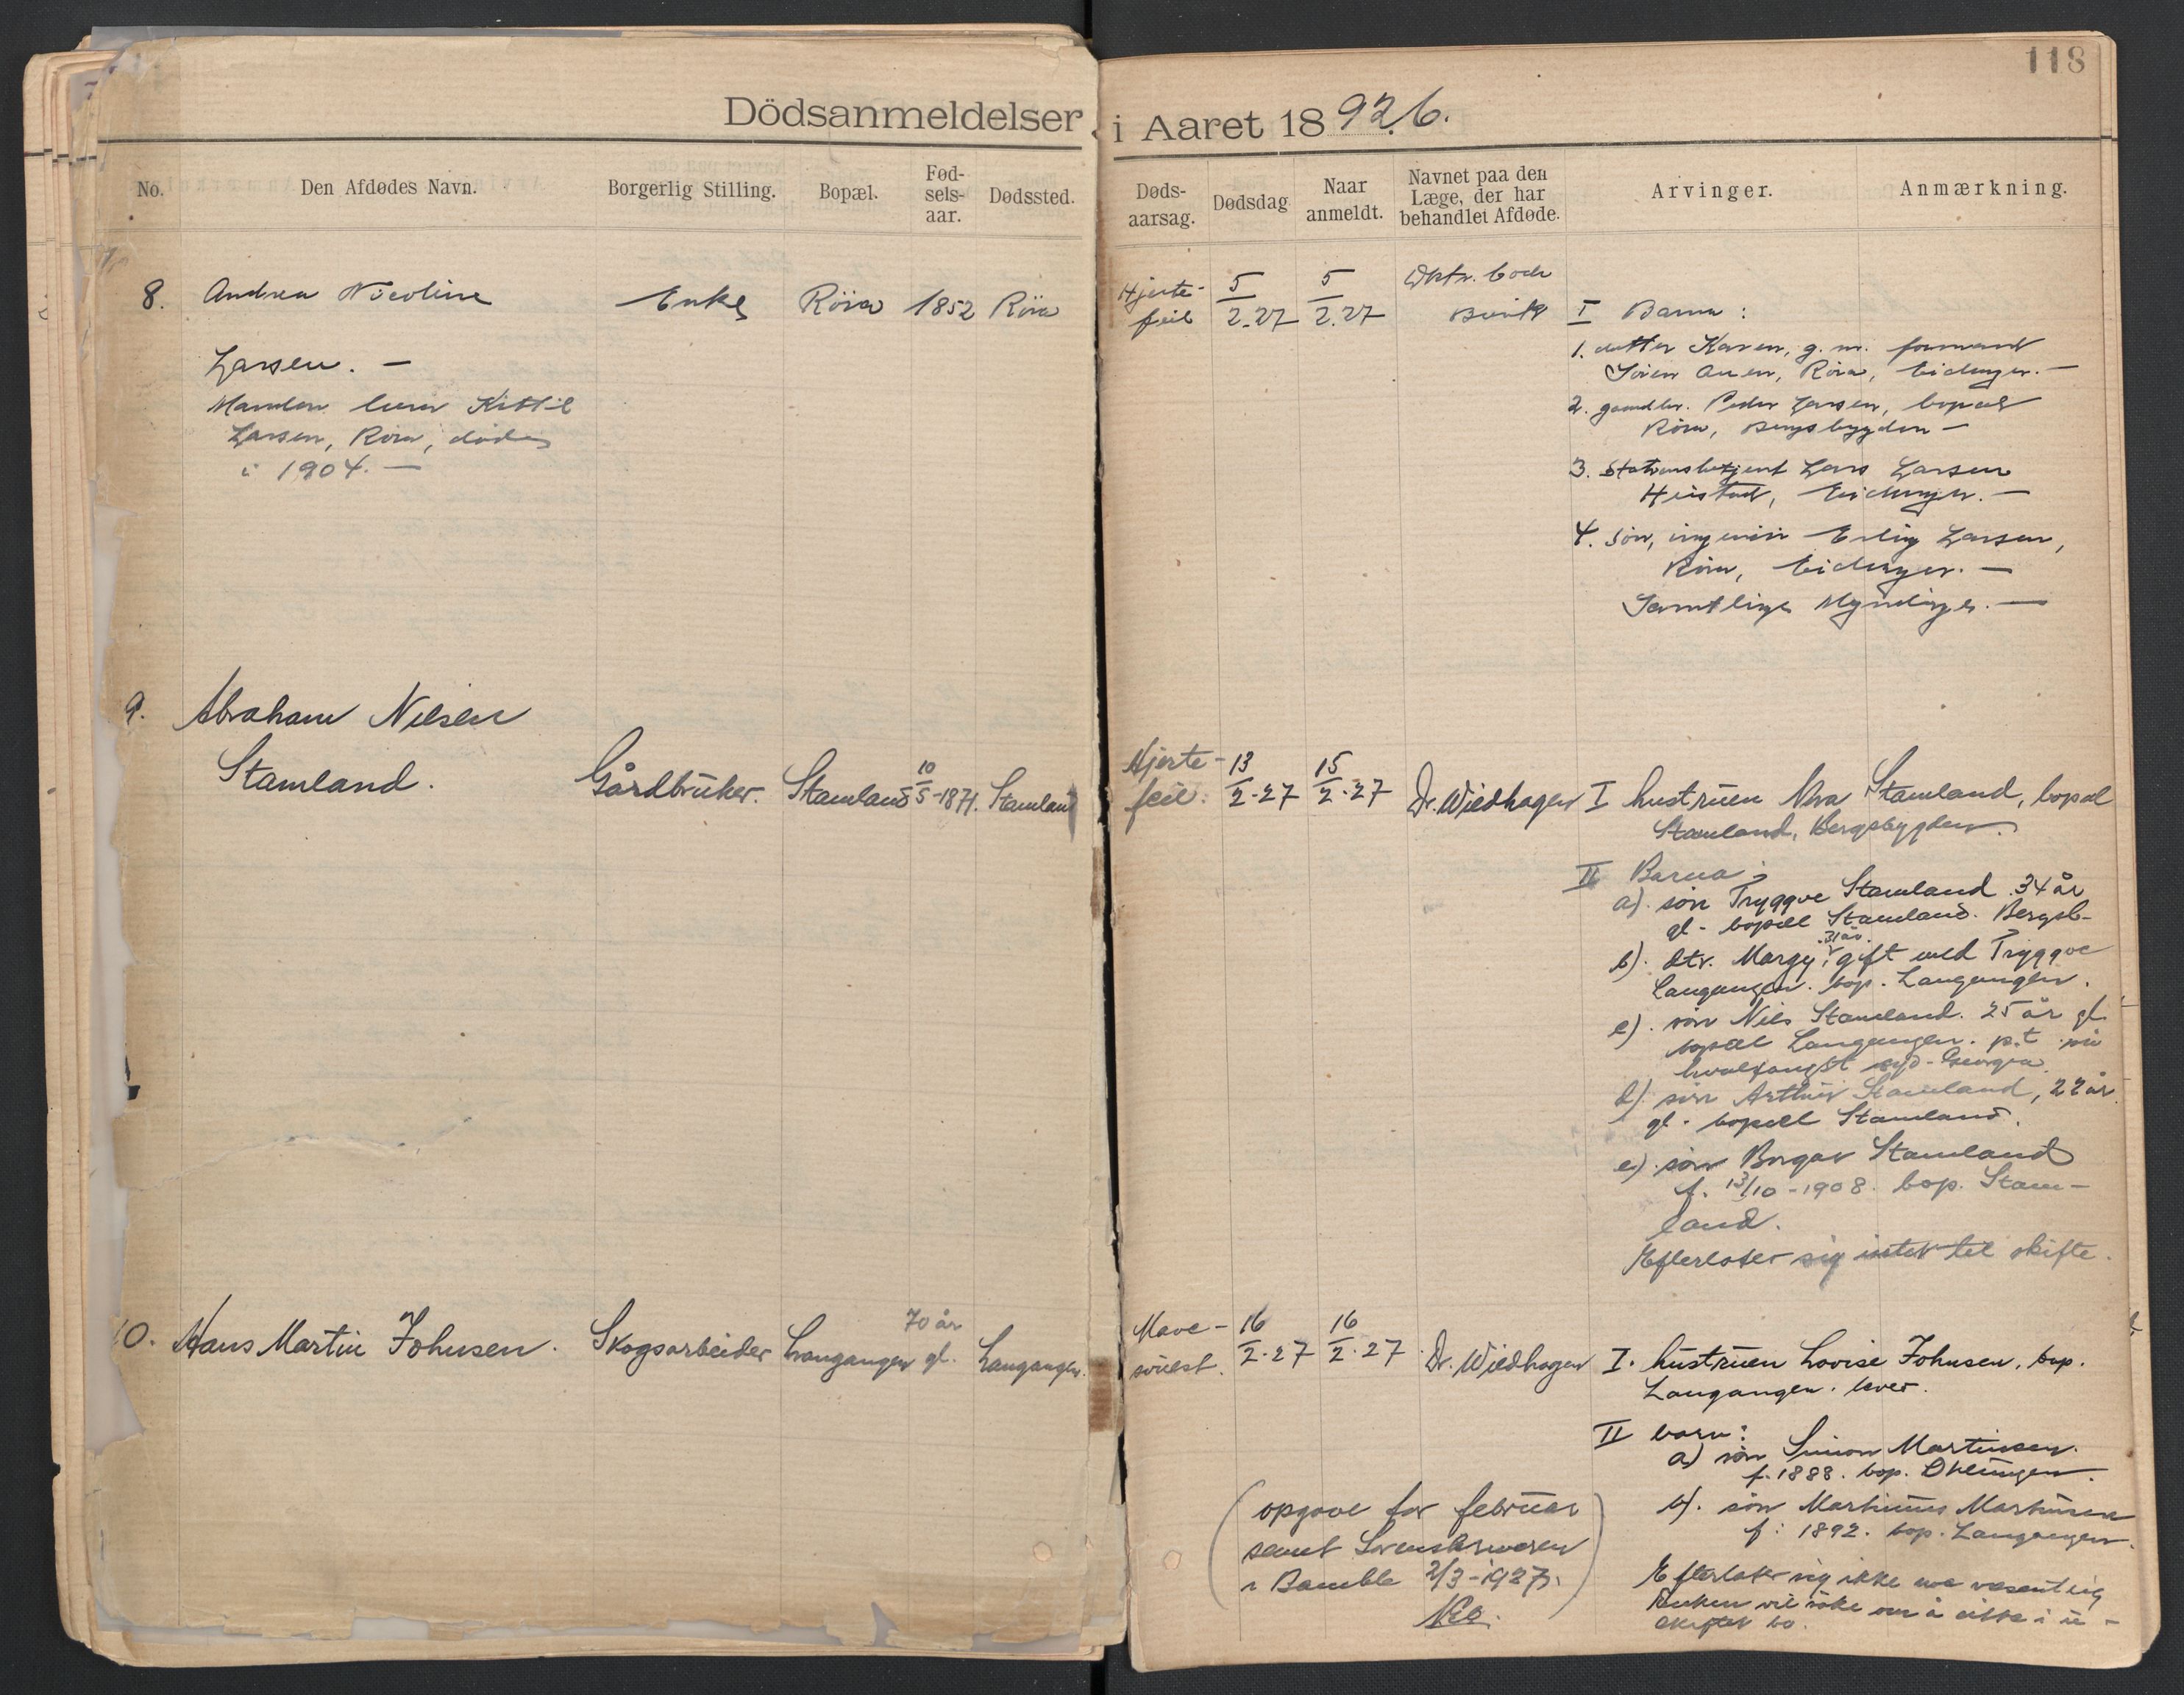 118
Dödsanmeldelser i Aaret 1892.6.
No. Den Afdødes Navn. Borgerlig Stilling. Bopæl. Fød-sels-aar. Dødssted. Døds-aarsag. Dødsdag Naar anmeldt. Navnet paa den Læge, der har behandlet Afdøde. Arvinger. Anmærkning.
8. Andrea Nicoline Enke Röra 1852 Röra Hjerte- 5 5
Larsen. — feil 2.27 2.27
Manden Kittil
Larsen, Röra, døde
i 1904. —
I Barn:
1. datter Karen, g. m. formand
Röra, Eidanger. —
2. gaardbr. Peder Larsen, bopæl
Röra, Bergsbygden —
3. Stationsbetjent Lars Larsen
Heistad, Eidanger. —
4. Sön, ingeniör Erling Larsen,
Röra, Eidanger. —
Samtlige Myndige. —
9. Abraham Nilsen
Stamland. Gårdbruker. Stamland 10/5-1871. Stamland
Hjerte- 13 15
feil. 2-27 2-27 Dr. Wiedhagen I hustruen Stamland, bopæl
Stamland, Bergsbygden.
II Barna:
a). sön Tryggve Stamland 34 år
gl. bopæll Stamland. Bergsb-
b). dtr. Margy, 31 år. gift med Tryggve
Langangen. bop. Langangen.
c). sön Nils Stamland. 25 år gl.
bopæl Langangen. p.t. på
hvalfangst syd-Georgia
d) sön Arthur Stamland, 22 år
gl. bopæll Stamland.
e). sön Borgar Stamland
f. 13/10-1908. bop. Stam-
land.
Efterlater sig intet til skifte.
10. Hans Martin Johnsen. Skogsarbeider Langangen 70 år gl. Langangen.
Mave- 16 16
2-27 2-27 Dr. Wiedhagen I. hustruen Lovise Johnsen, bop.
Langangen. lever.
II barn:
a) sön Simon Martinsen.
f. 1888. bop.
b). sön Martinius Martinsen
f. 1892. bop. Langangen.
Efterlater sig ikke noe væsentlig
Enken vil söke om å sitte i u-
skiftet bo.
(opgave for februar
sendt Sorenskriveren
i Bamble 2/3-1927.)